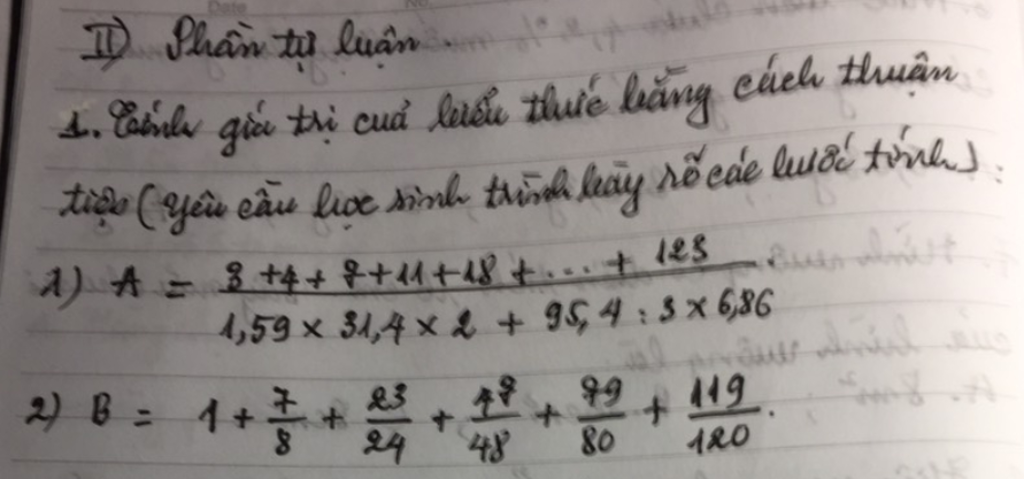 II) Phần tự luận.
1. Tính giá trị của biểu thức bằng cách thuận
tiện (yêu cầu học sinh trình bày rõ các bước tính):
1) A = \frac{3 + 4 + 7 + 11 + 18 + ... + 123}{1,59 × 31,4 × 2 + 95,4 : 3 × 6,86}.
2) B = 1 + \frac{7}{8} + \frac{23}{24} + \frac{47}{48} + \frac{79}{80} + \frac{119}{120}.